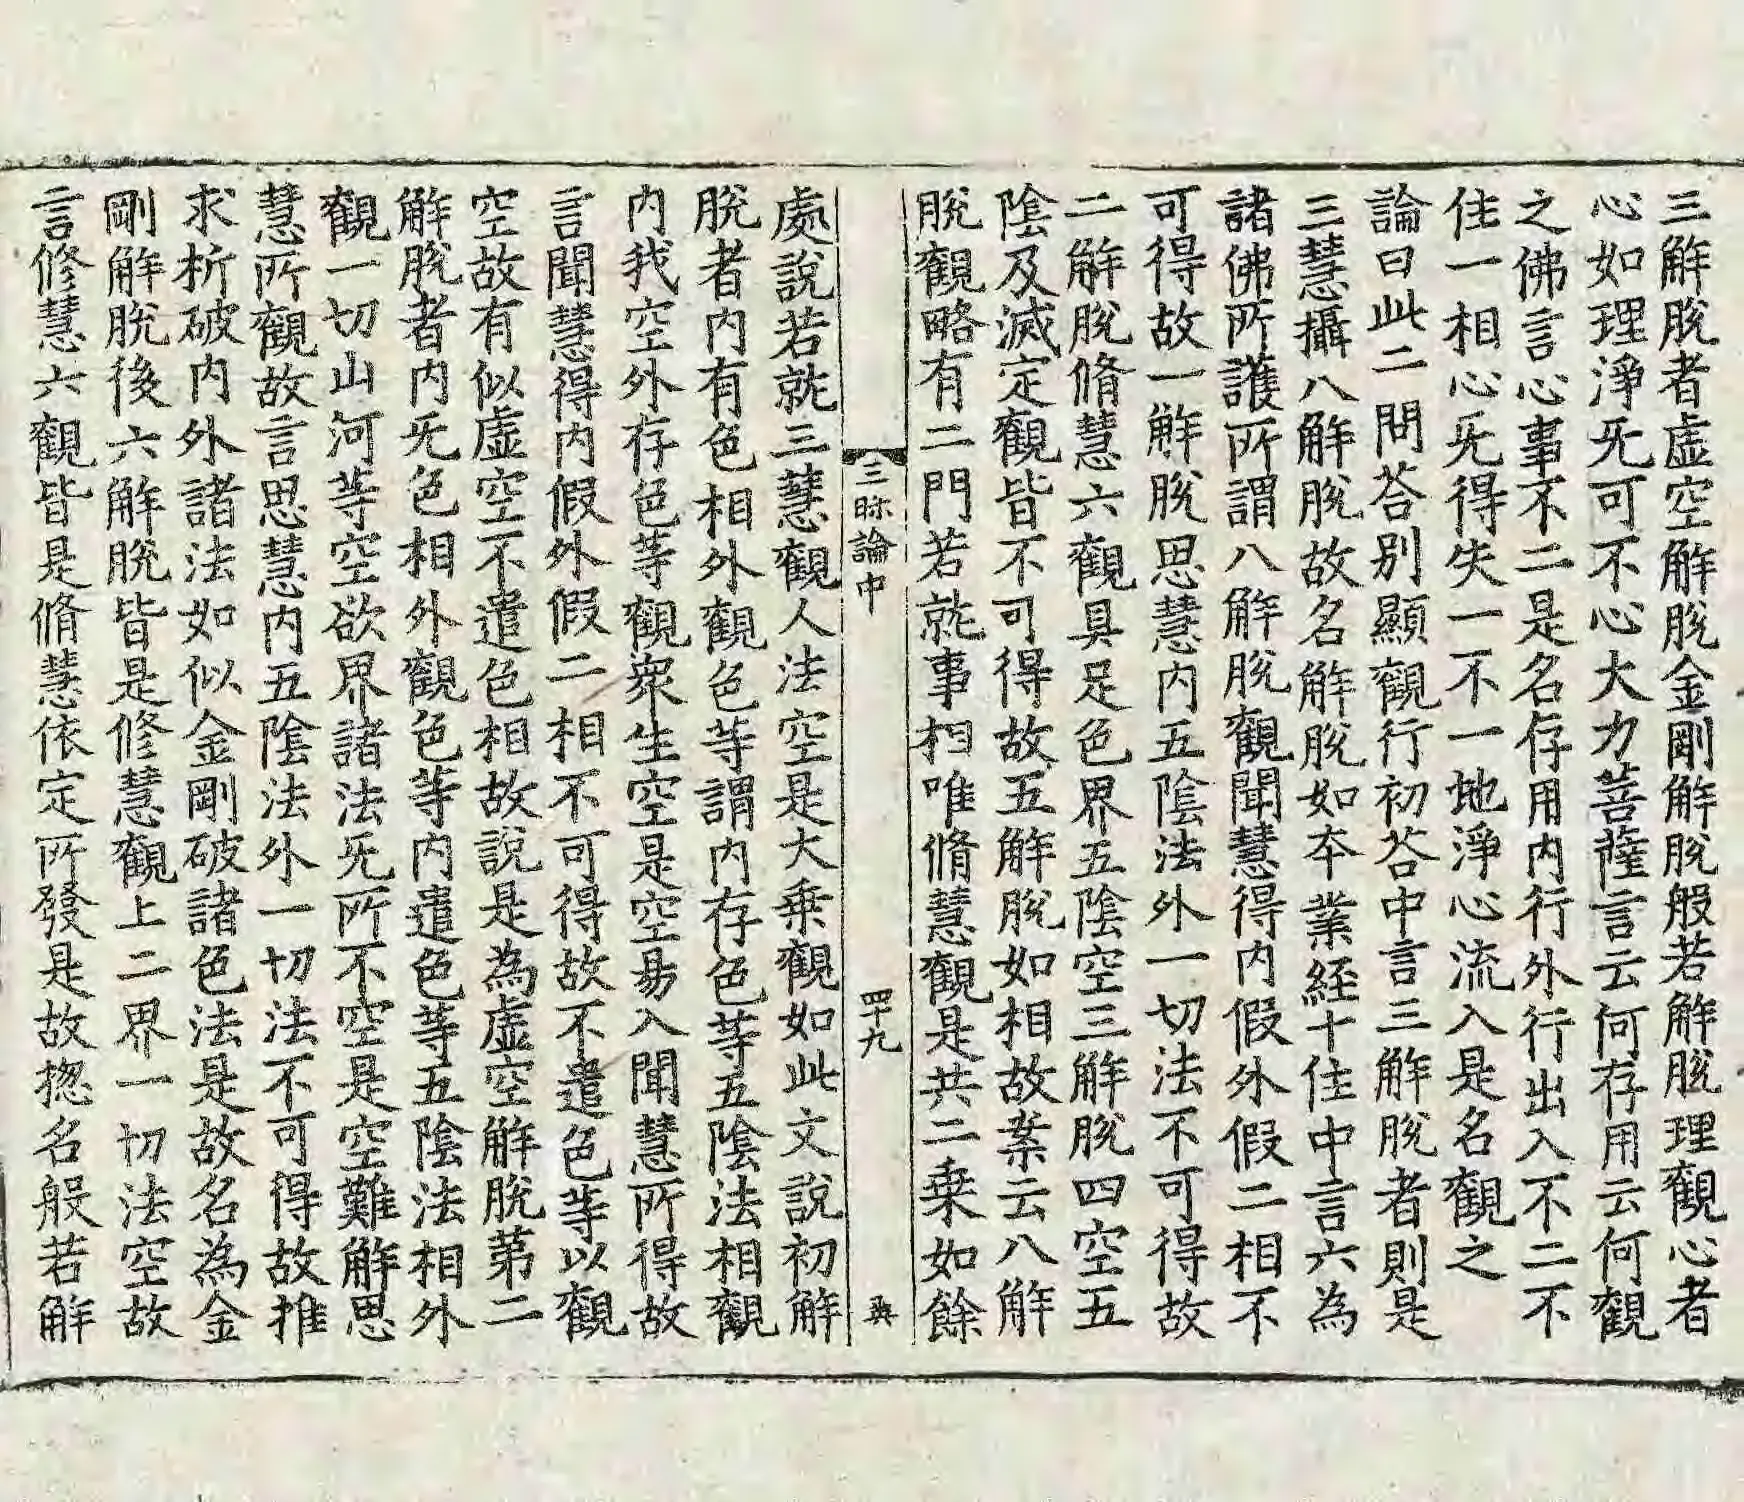 三解脫者虛空解脫金剛解脫般若解脫理觀心者
心如理淨旡可不心大力菩薩言云何存用云何觀
之佛言心事不二是名存用內行外行出入不二不
住一相心旡得失一不一地淨心流入是名觀之
論曰此二問荅別顯觀行初荅中言三解脫者則是
三慧攝八解脫故名解脫如本業經十住中言六為
諸佛所護所謂八解脫觀聞慧得內假外假二相不
可得故一解脫思慧內五陰法外一切法不可得故
二解脫脩慧六觀具足色界五陰空三解脫四空五
陰及滅定觀皆不可得故五解脫如相故案云八解
脫觀略有二門若就事相唯脩慧觀是共二乗如餘
三昧論中 四十九
處說若就三慧觀人法空是大乗觀如此文說初解
脫者內有色相外觀色等謂內存色等五陰法相觀
內我空外存色等觀衆生空是空易入聞慧所得故
言聞慧得內假外假二相不可得故不遣色等以觀
空故有似虛空不遣色相故說是為虛空解脫第二
解脫者內旡色相外觀色等內遣色等五陰法相外
觀一切山河等空欲界諸法旡所不空是空難解思
慧所觀故言思慧內五陰法外一切法不可得故推
求析破內外諸法如似金剛破諸色法是故名為金
剛解脫後六解脫皆是修慧觀上二界一切法空故
言修慧六觀皆是脩慧依定所發是故揔名般若解